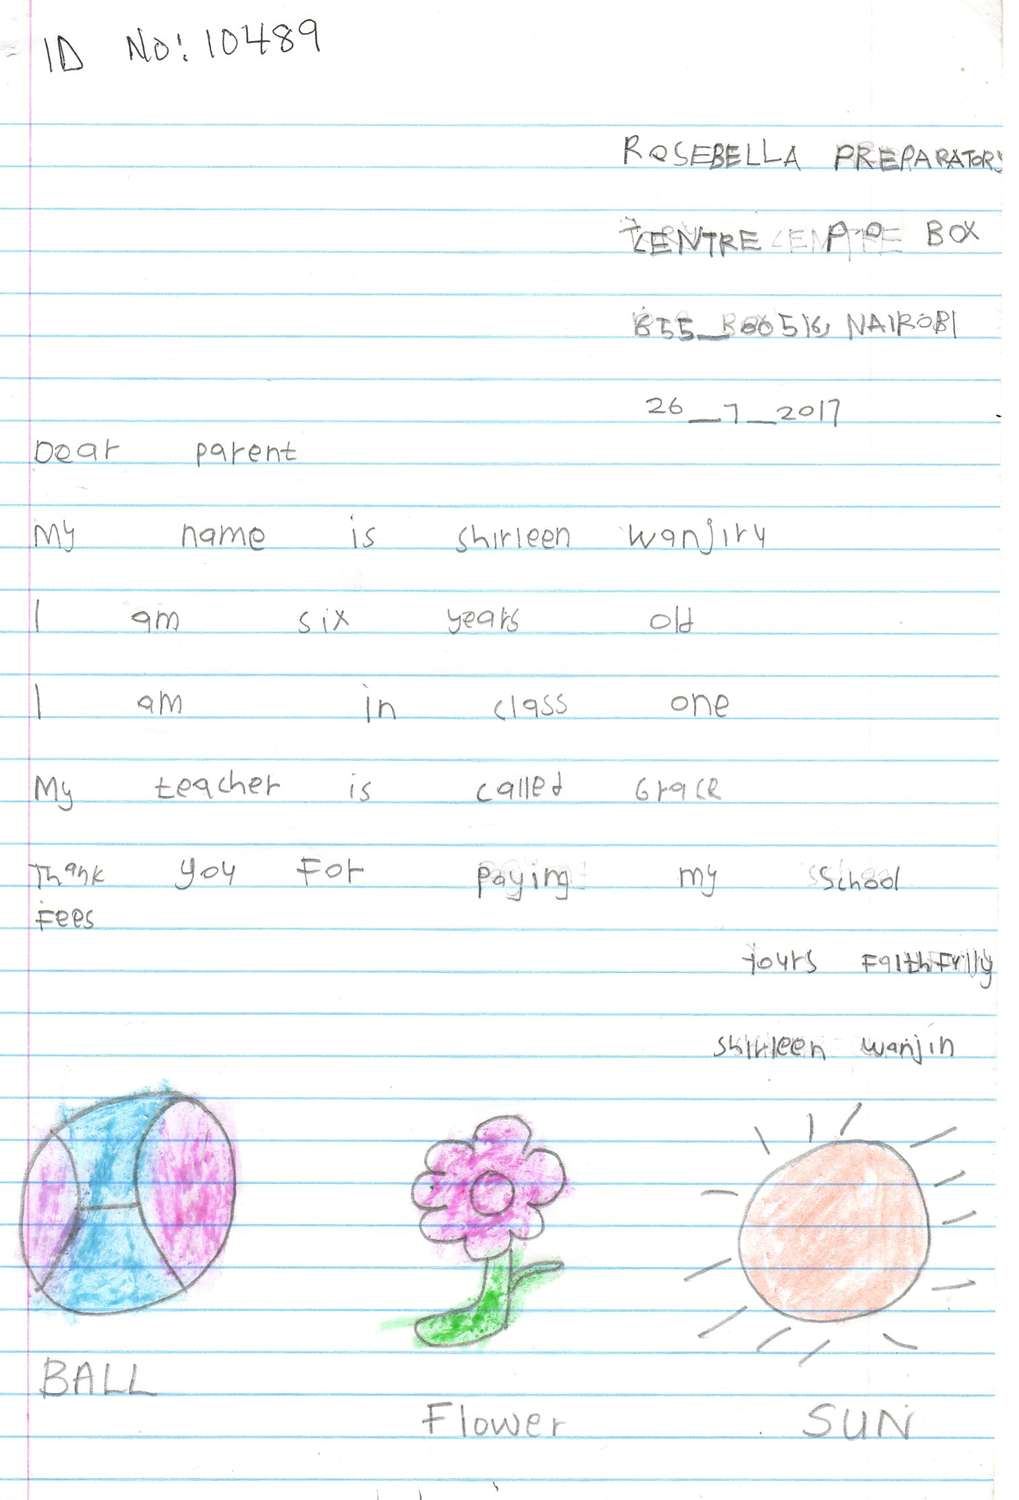 ID No: 10489
ROSEBELLA PREPARATORY
CENTRE P O BOX
NAIROBI
26_7_2017
Dear parent
My name is shirleen wanjiru
I am six years old
I am in class one
My teacher is called Grace
Thank you For paying my School
Fees
yours FaithFully
shirleen wanjiru
BALL
Flower
SUN